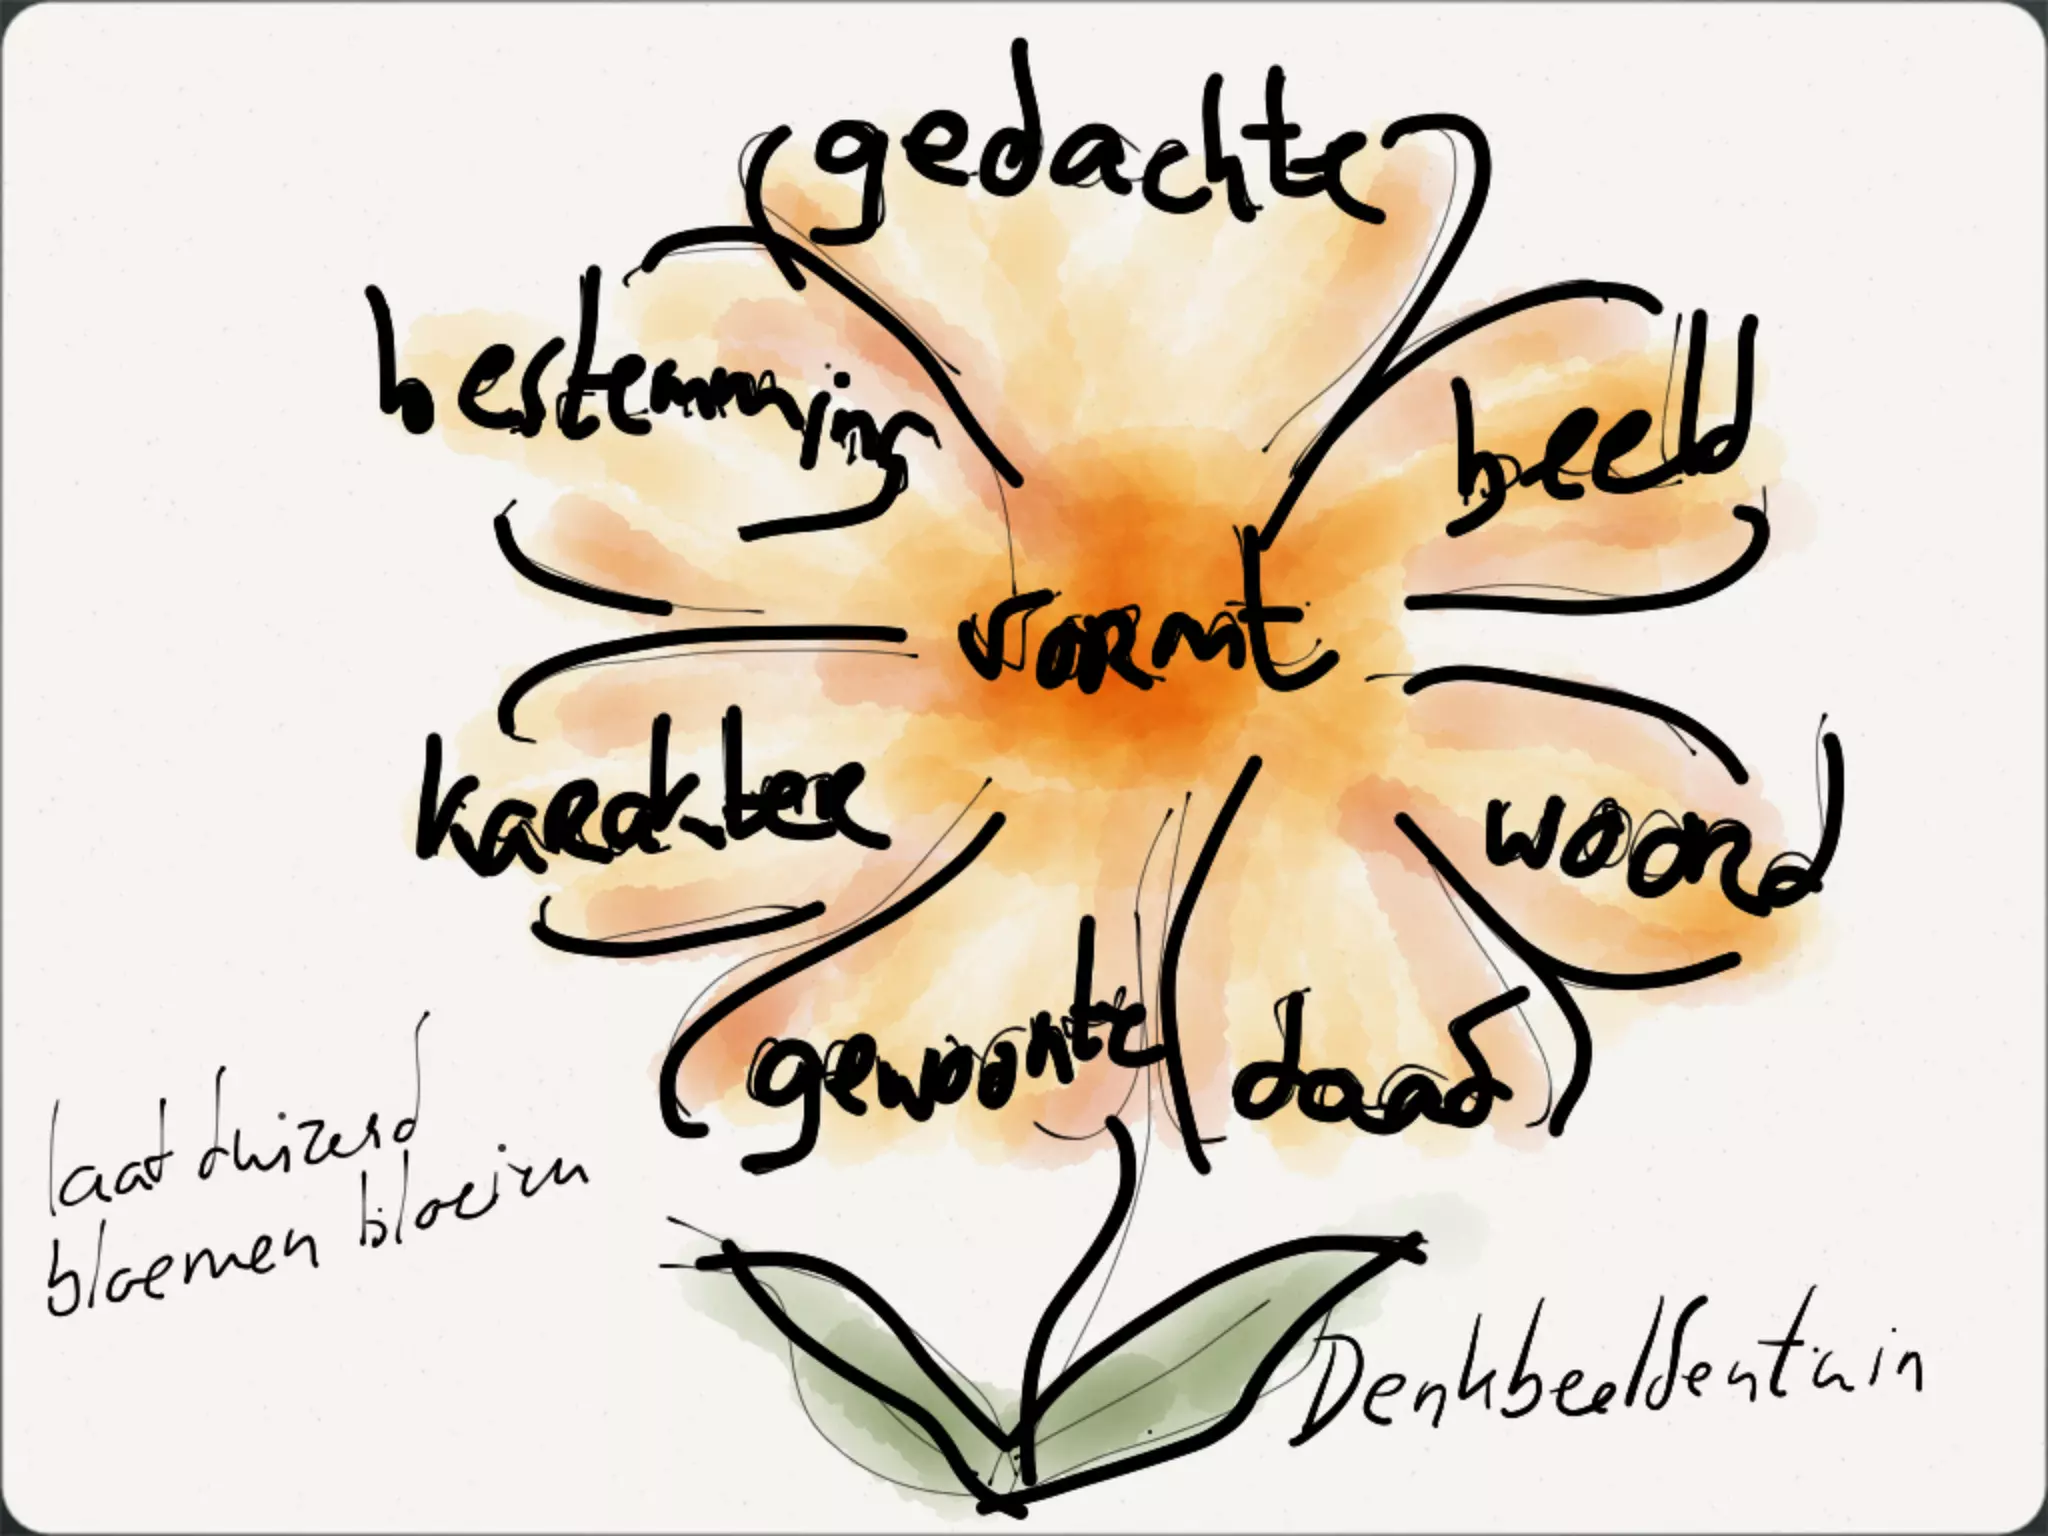 gedachte
beeld
woord
daad
gewoonte
karakter
bestemming
vormt
laat duizend
bloemen bloeien
Denkbeeldentuin